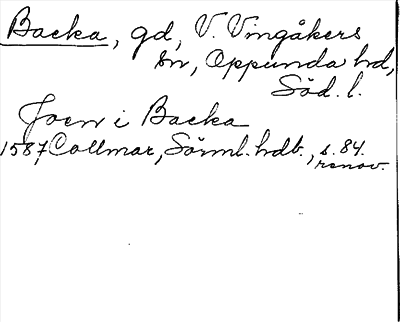 Backa, gd, V. Vingåkers
sn, Oppunda hd,
Söd. l.
Joen i Backa
1587 Collmar, Sörml. hdb., s. 84.
renov.